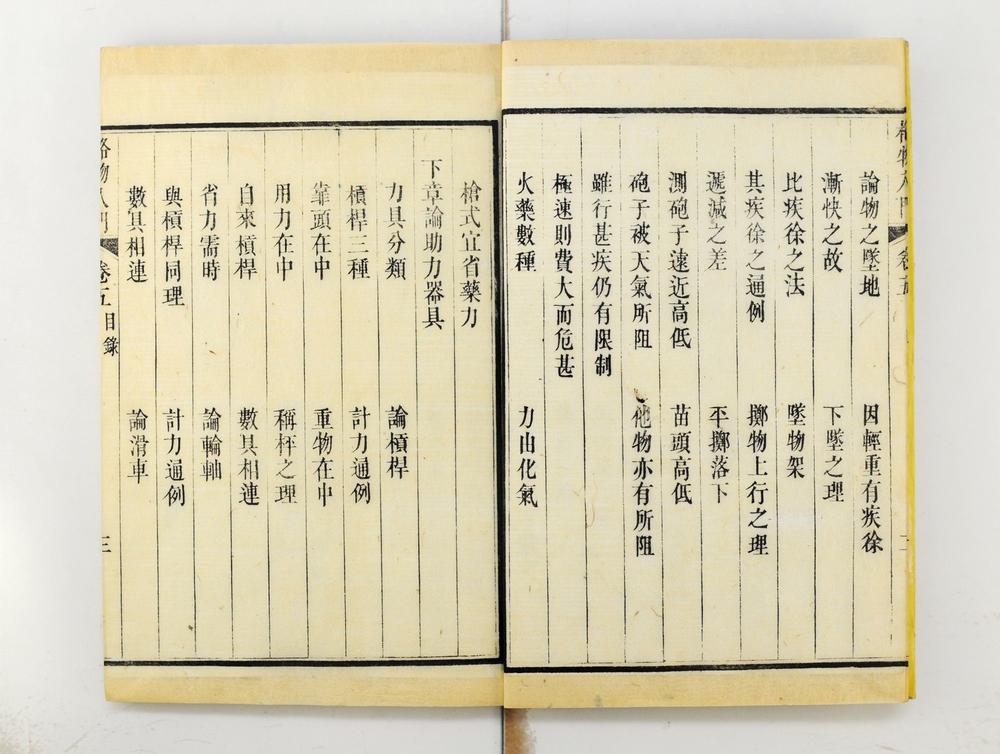 格物入門 卷五
論物之墜地 因輕重有疾徐
漸快之故 下墜之理
比疾徐之法 墜物架
其疾徐之通例 擲物上行之理
遞減之差 平擲落下
測砲子遠近高低 苗頭高低
砲子被天氣所阻 他物亦有所阻
雖行甚疾仍有限制
極速則費大而危甚
火藥數種 力由化氣
槍式宜省藥力
下章論助力器具
力具分類 論槓桿
槓桿三種 計力通例
靠頭在中 重物在中
用力在中 稱枰之理
自來槓桿 數具相連
省力需時 論輪軸
與槓桿同理 計力通例
數具相連 論滑車
格物入門 卷五 目錄 三